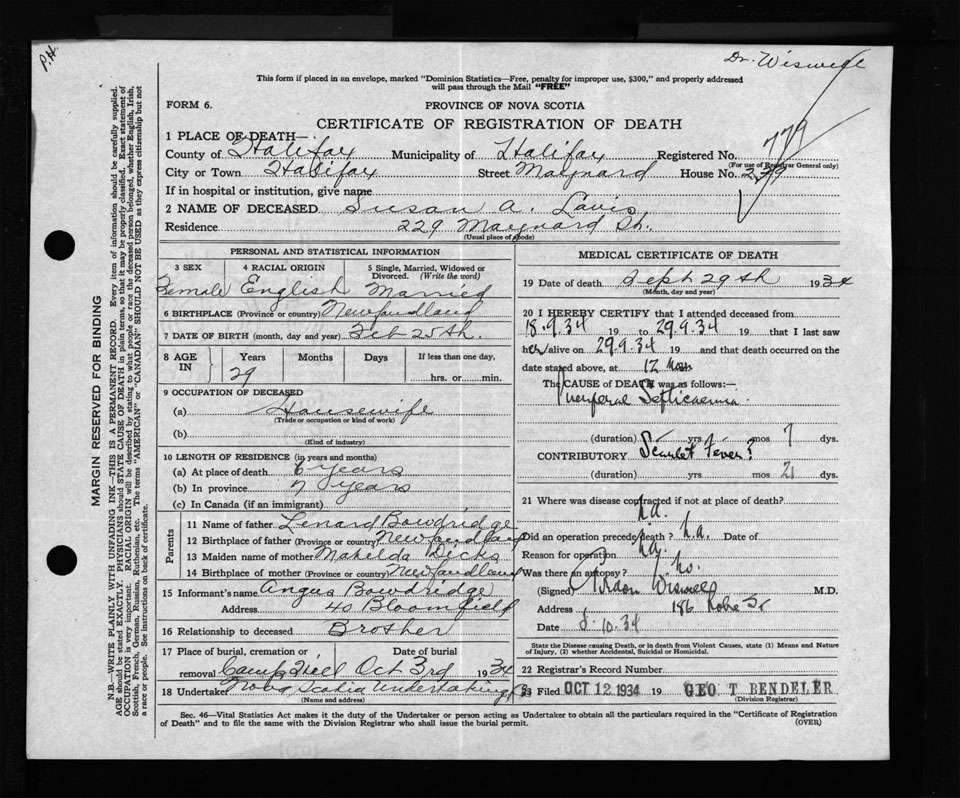 P.H.
Dr. Wiswell
This form if placed in an envelope, marked "Dominion Statistics—Free, penalty for improper use, $300," and properly addressed
will pass through the Mail "FREE"
FORM 6.
PROVINCE OF NOVA SCOTIA
CERTIFICATE OF REGISTRATION OF DEATH
779
1 PLACE OF DEATH—
County of Halifax Municipality of Halifax Registered No.
(For use of Registrar General only)
City or Town Halifax Street Maynard House No. 229
If in hospital or institution, give name
2 NAME OF DECEASED Susan A. Lavis
Residence 229 Maynard St.
(Usual place of abode)
PERSONAL AND STATISTICAL INFORMATION
3 SEX 4 RACIAL ORIGIN 5 Single, Married, Widowed or
Divorced. (Write the word)
Female English Married
6 BIRTHPLACE (Province or country) Newfandland
7 DATE OF BIRTH (month, day and year) Feb 25th.
8 AGE IN Years Months Days If less than one day,
29 hrs. or min.
9 OCCUPATION OF DECEASED
(a) Housewife
(Trade or occupation or kind of work)
(b)
(Kind of industry)
10 LENGTH OF RESIDENCE (in years and months)
(a) At place of death 6 years
(b) In province 7 years
(c) In Canada (if an immigrant)
Parents
11 Name of father Lenard Bowdridge
12 Birthplace of father (Province or country) Newfandland
13 Maiden name of mother Matilda Dicks
14 Birthplace of mother (Province or country) Newfandland
15 Informant's name Angus Bowdridge
Address 40 Bloomfield
16 Relationship to deceased Brother
17 Place of burial, cremation or Date of burial
removal Camp Hill Oct 3rd 1934
18 Undertaker Nova Scotia Undertaking Co
(Name and address)
MEDICAL CERTIFICATE OF DEATH
19 Date of death Sept 29th 1934
(Month, day and year)
20 I HEREBY CERTIFY that I attended deceased from
18.9.34 19 to 29.9.34 19 that I last saw
her alive on 29.9.34 19 and that death occurred on the
date stated above, at 12 m
The CAUSE of DEATH was as follows:—
Puerperal Septicaemia
(duration) yrs mos 7 dys.
CONTRIBUTORY Scarlet Fever?
(duration) yrs mos 21 dys.
21 Where was disease contracted if not at place of death?
n.a.
Did an operation precede death? n.a. Date of
Reason for operation na.
Was there an autopsy? no.
(Signed) Wiswell M.D.
Address 186 Robie St
Date 8.10.34
State the Disease causing Death, or in death from Violent Causes, state (1) Means and Nature
of Injury, (2) whether Accidental, Suicidal or Homicidal.
22 Registrar's Record Number
23 Filed OCT 12 1934 19 GEO T BENDELER
(Division Registrar)
Sec. 46—Vital Statistics Act makes it the duty of the Undertaker or person acting as Undertaker to obtain all the particulars required in the "Certificate of Registration
of Death" and to file the same with the Division Registrar who shall issue the burial permit. (OVER)
MARGIN RESERVED FOR BINDING
N.B.—WRITE PLAINLY WITH UNFADING INK—THIS IS A PERMANENT RECORD. Every item of information should be carefully supplied.
AGE should be stated EXACTLY. PHYSICIANS should STATE CAUSE OF DEATH in plain terms, so that it may be properly classified. Exact statement of
OCCUPATION is very important. RACIAL ORIGIN will be described by stating to what people or race the deceased person belonged, whether English, Irish,
Scottish, French, German, Russian, Ruthenian, etc. The terms "AMERICAN" or "CANADIAN" SHOULD NOT BE USED as they express citizenship but not
a race or people. See instructions on back of certificate.